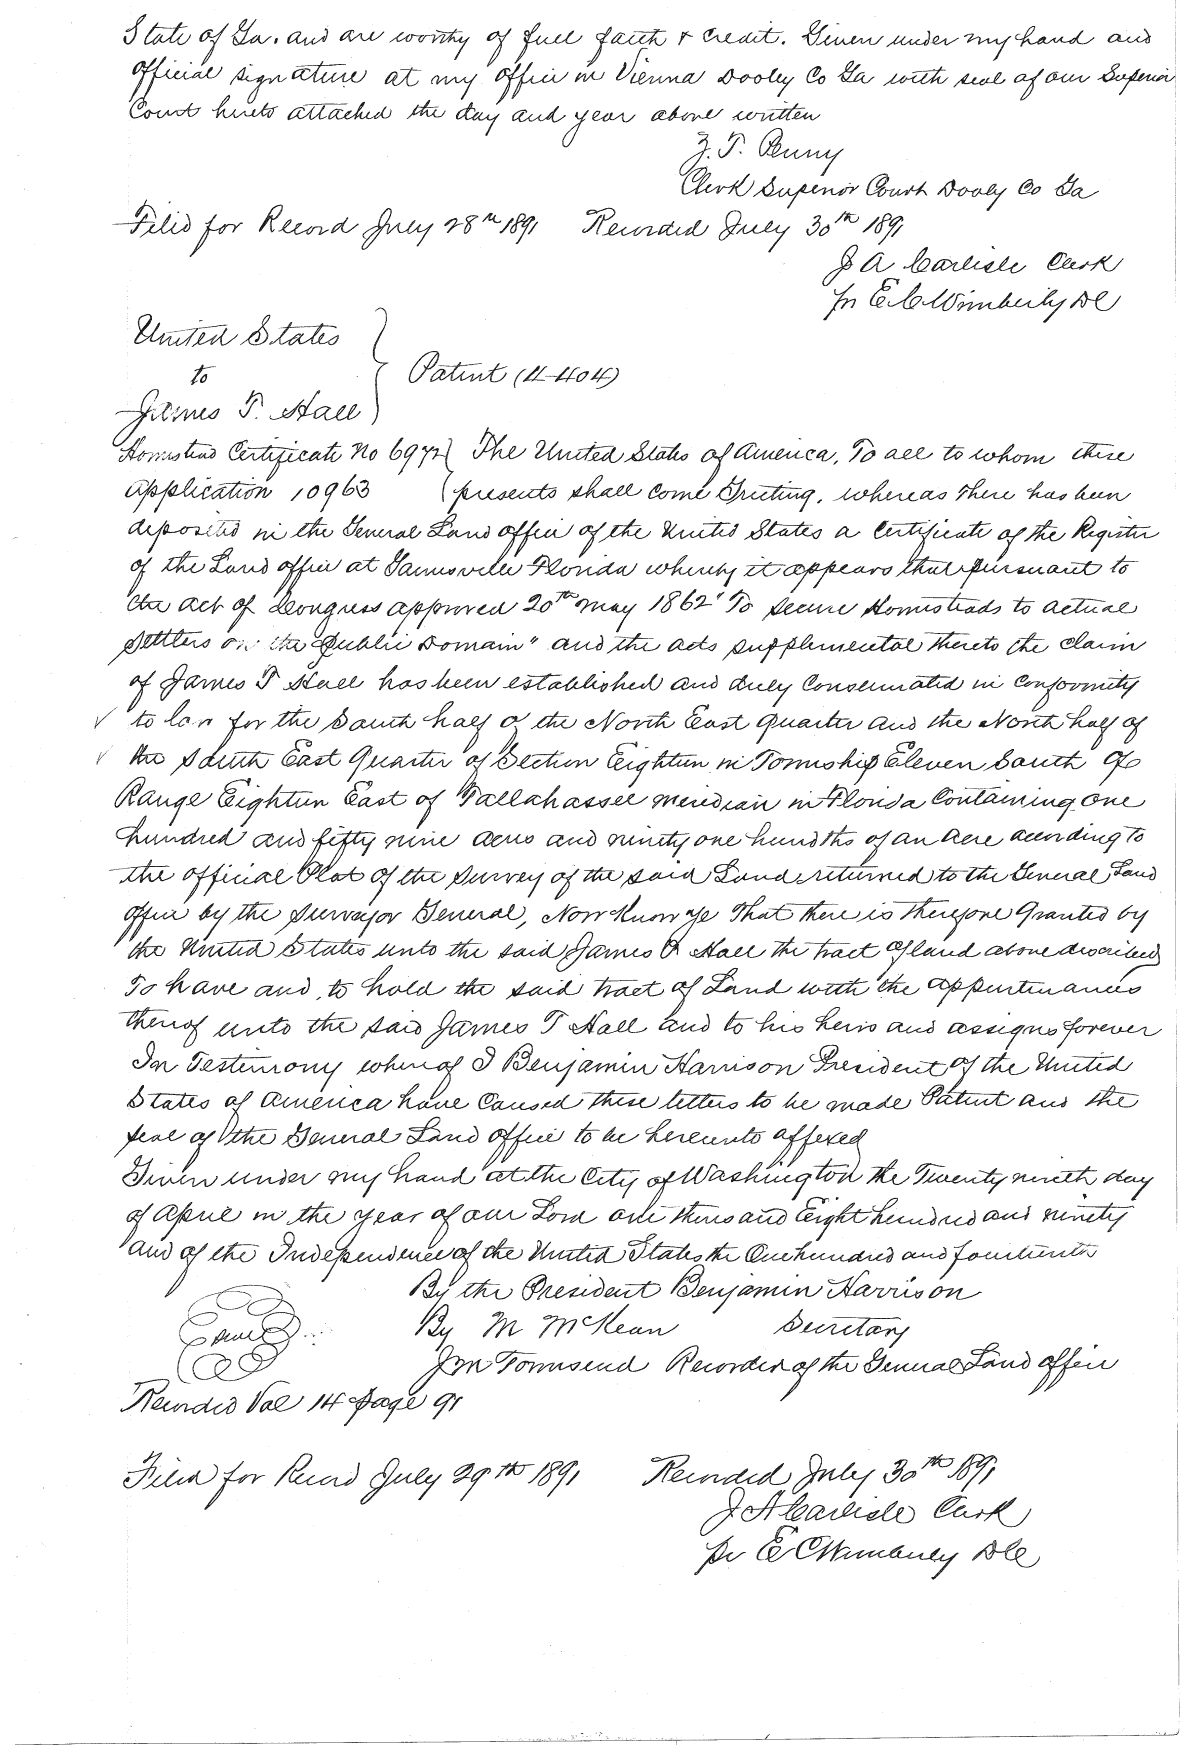 State of Ga. and are worthy of full faith & credit. Given under my hand and
official signature at my office in Vienna Dooley Co Ga with seal of our Superior
Court hereto attached the day and year above written
Z. T. Penny
Clerk Superior Court Dooly Co Ga
Filed for Record July 28th 1891 Recorded July 30th 1891
J A Carlisle Clerk
Pr E. C. Wimberly DC
United States
to
Patent (4-404)
James T. Hall
Homestead Certificate No 6972 The United States of America, To all to whom these
Application 10963 presents shall come Greeting. whereas there has been
deposited in the General Land office of the United States a Certificate of the Register
of the Land office at Gainesville Florida whereby it appears that pursuant to
the act of Congress approved 20th May 1862 "To secure Homesteads to actual
settlers on the Public Domain" and the acts supplemental thereto the claim
of James T Hall has been established and duly Consumated in conformity
to law for the South half of the North East quarter and the North half of
the South East Quarter of Section Eighteen in Township Eleven South of
Range Eighteen East of Tallahassee meridian in Florida Containing one
hundred and fifty nine acres and ninety one hundths of an acre according to
the official Plat of the Survey of the said Land returned to the General Land
office by the Surveyor General, Now Know ye That there is therefore Granted by
the United States unto the said James T Hall the tract of land above described
To have and to hold the said tract of Land with the appurtenances
thereof unto the said James T Hall and to his heirs and assigns forever
In Testimony whereof I Benjamin Harrison President of the United
States of America have caused these letters to be made Patent and the
seal of the General Land office to be hereunto affexed
Given under my hand at the City of Washington the Twenty nineth day
of April in the year of our Lord one thousand Eight hundred and ninety
and of the Independence of the United States the One hundred and fourteenth
By the President Benjamin Harrison
By M McKean Secretary
J M Townsend Recorder of the General Land office
Recorded Vol 14 page 91
Filed for Record July 29th 1891 Recorded July 30th 1891
J A Carlisle Clerk
Pr E C Wimberly DC